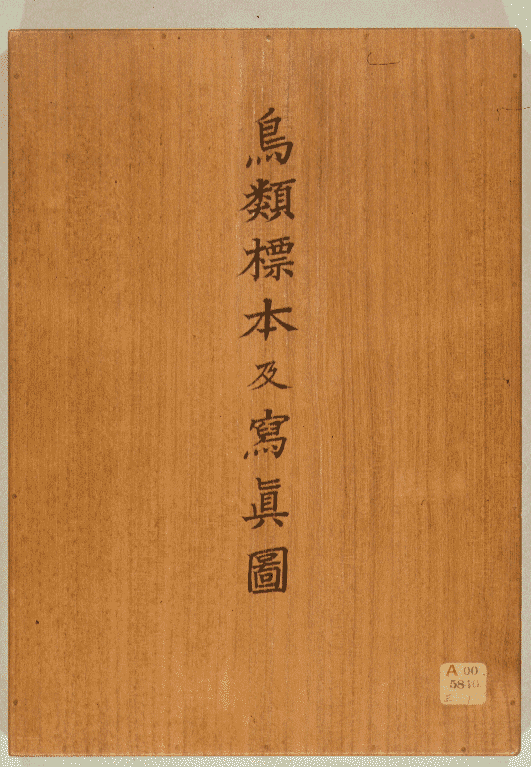 鳥類標本及寫眞圖
A 00
5840